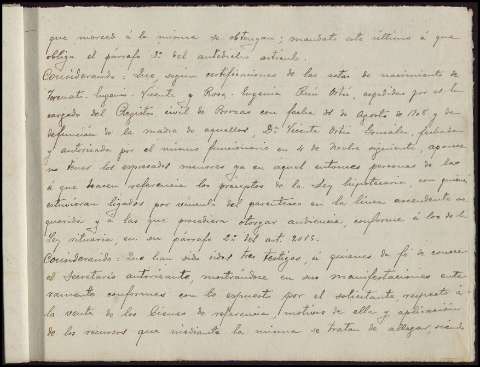 que merced á la misma se obtengan; mandato este último á que
obliga el párrafo 3º del antedicho artículo.
Considerando: Que, según certificaciones de las actas de nacimiento de
Vicente y Rosa Eugenia Ortiz, expedidas por el En
cargado del Registro civil de con fecha 28 de Agosto de 1905 y de
defunción de la madre de aquellos, Dª Vicenta Ortiz González, fechada
y autorizada por el mismo funcionario en 4 de siguiente, aparece
no tener los expresados menores ya en aquel entonces personas de las
á que hacen referencia los preceptos de la Ley hipotecaria, con quienes
estuvieran ligados por vínculo del parentesco en la línea ascendente re
querida y á las que procediera otorgar audiencia, conforme á lo de la
Ley rituaria, en su párrafo 2º del art. 2015.
Considerando: Que han sido oidos tres testigos, á quienes da fé de conocer
el Secretario autorizante, mostrándose en sus manifestaciones ente
ramente conformes con lo expuesto por el solicitante respecto á
la venta de los bienes de referencia, motivos de ella y aplicación
de los recursos que mediante la misma se tratan de allegar, siendo